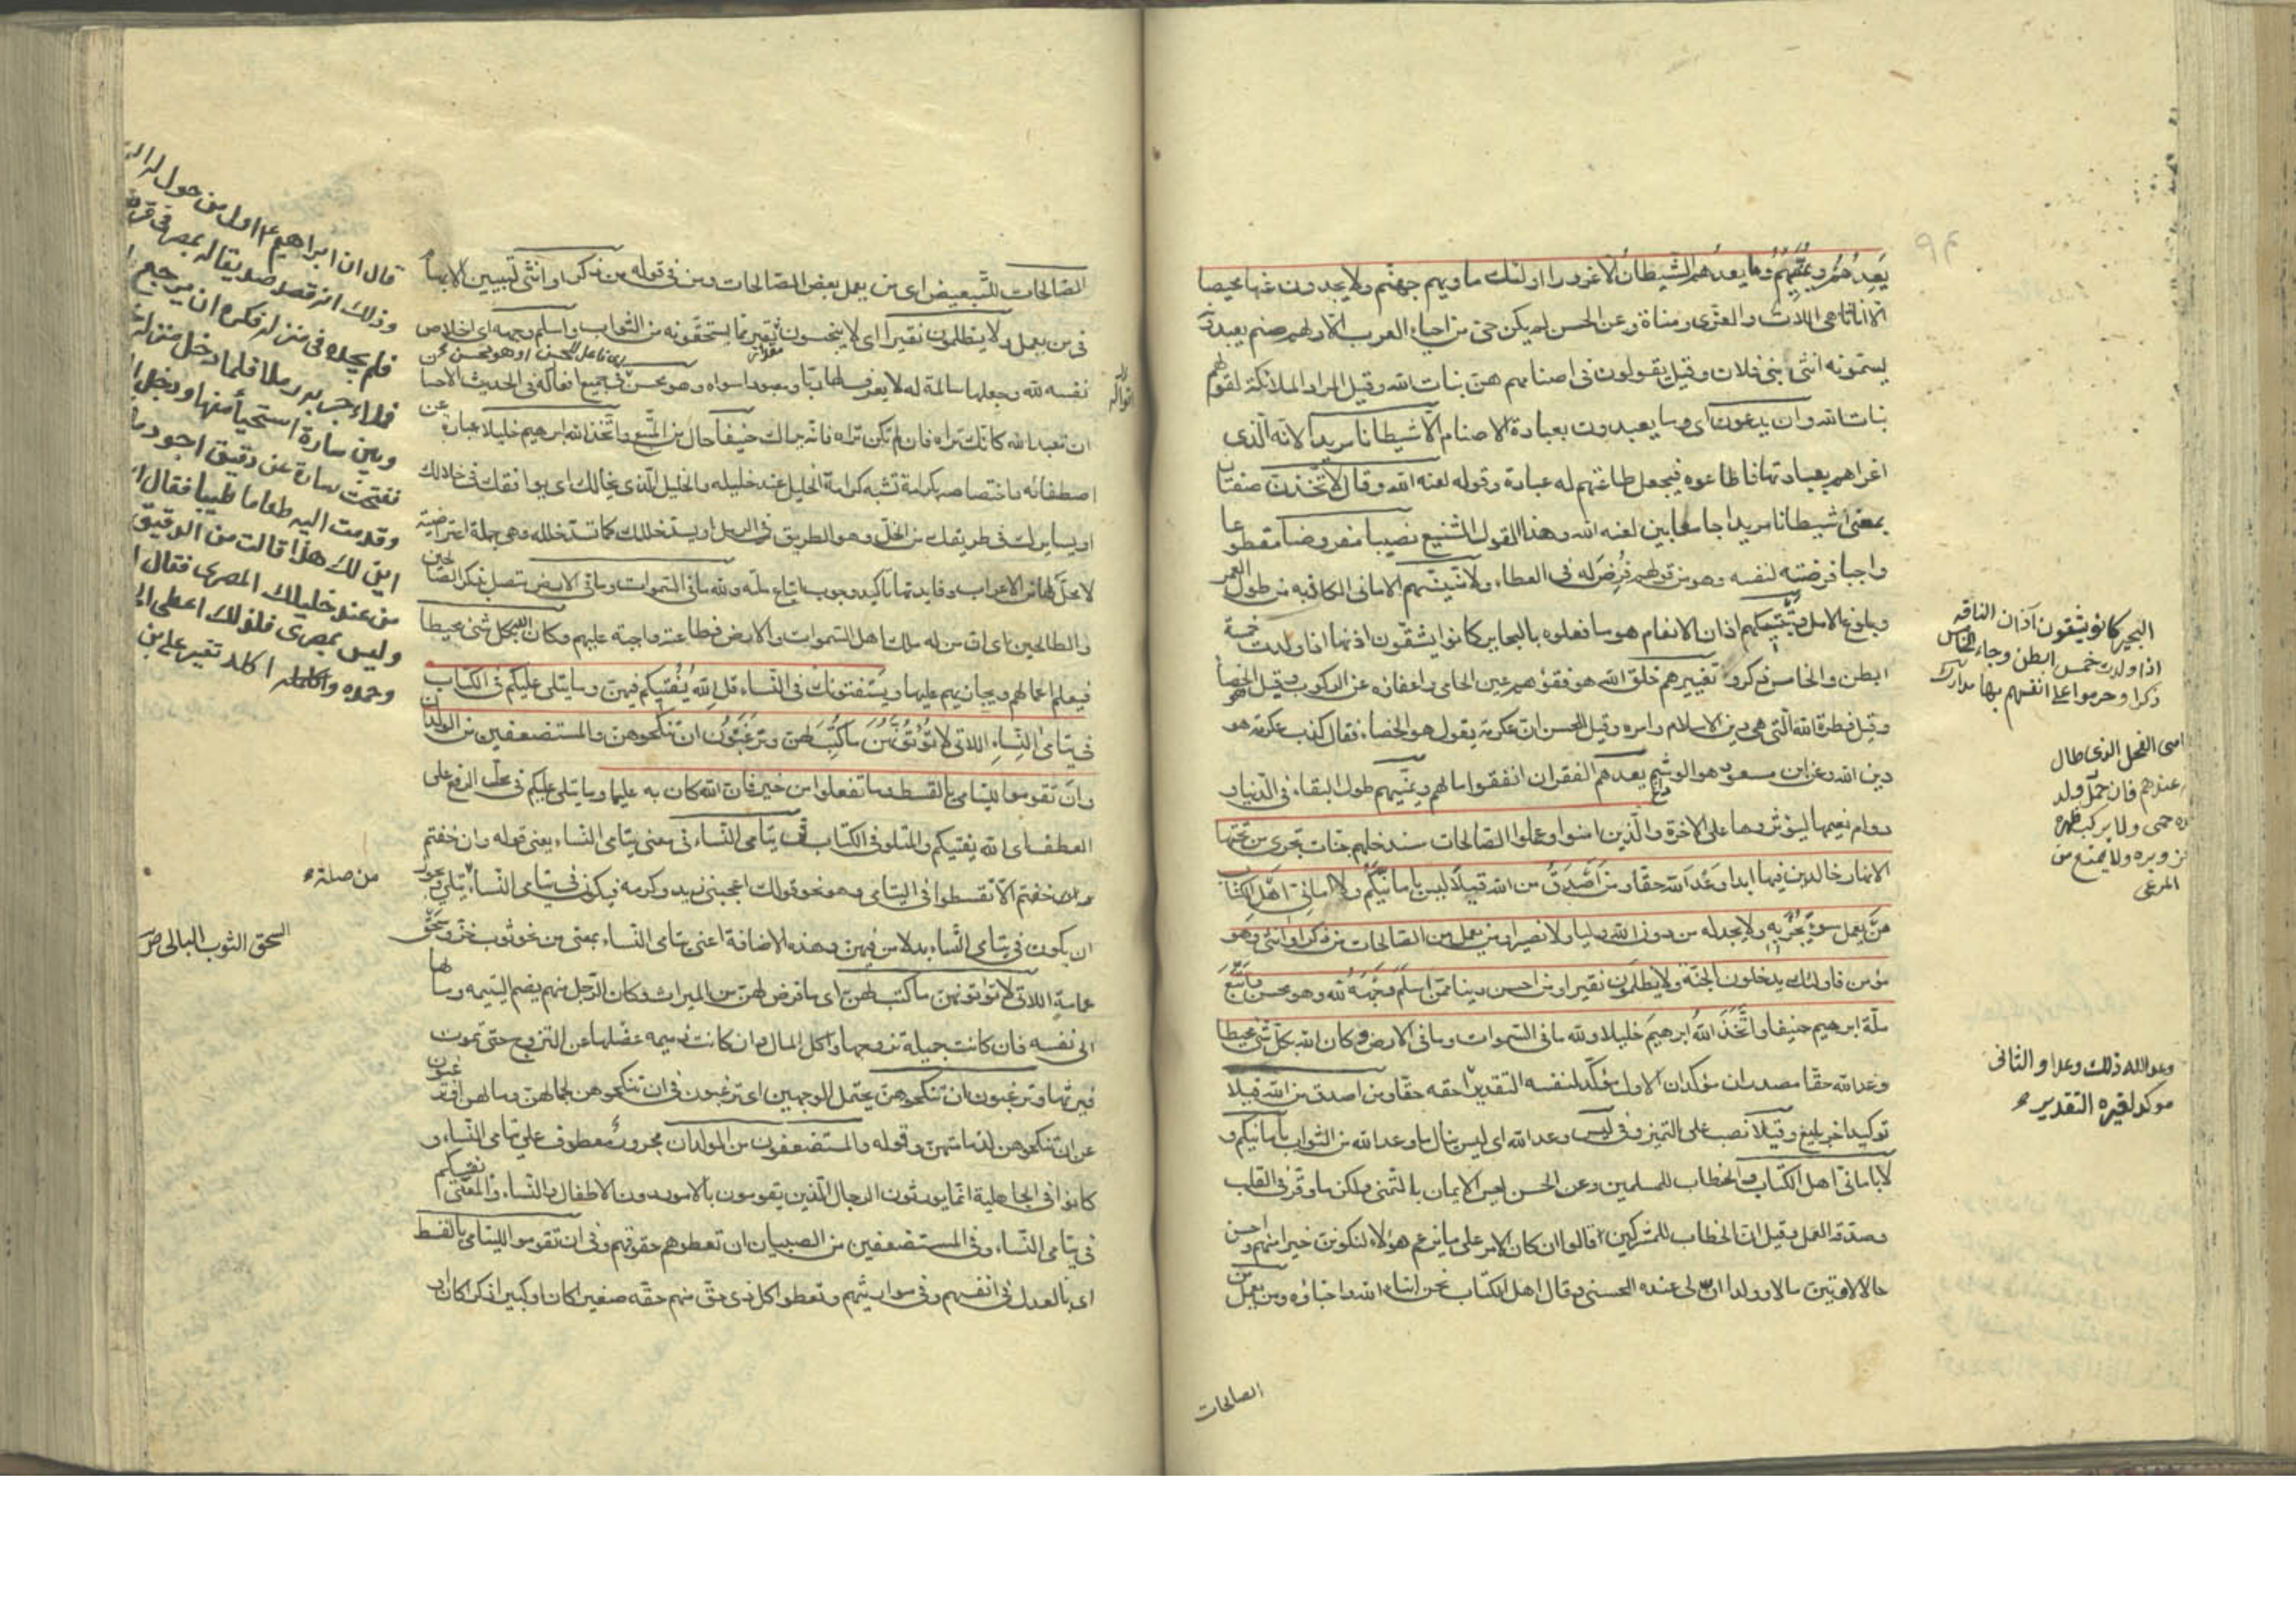 يَعِدُهُمْ وَيُمَنِّيهِمْ وما يعدهم الشيطان الا غرورا اولئك ماويهم جهنم ولا يجدون عنها محيصا
الا اناثا هي اللات والعزى ومناة وعن الحسن لم يكن حي من احياء العرب الا ولهم صنم يعبدونه
يسمونه انثى بني فلان وقيل يقولون في اصنامهم هن بنات الله وقيل المراد الملائكة لقولهم
بنات الله وان يدعون اى وما يعبدون بعبادة الاصنام الا شيطانا مريدا لانه الذى
اغراهم بعبادتها فاطاعوه فيجعل طاعتهم له عبادة وقوله لعنه الله وقال لاتخذن صفتان
بمعنى شيطانا مريدا جامعا بين لعنه الله وهذا القول الشنيع نصيبا مفروضا مقطوعا
واجبا فرضته لنفسه وهو من قولهم فرض له في العطاء ولامنينهم الامانى الكاذبه من طول العمر
وبلوغ الامل وتبتيكهم اذان الانعام هو ما فعلوه بالبحاير كانوا يشقون اذنها اذا ولدت خمسة
ابطن والخامس ذكر وتغييرهم خلق الله هو فقؤهم عين الحامى واعفاؤه عن الركوب وقيل الخصاء
وقيل فطرة الله التى هى دين الاسلام وامره وقيل للحسن ان عكرمة يقول هو الخصاء فقال كذب عكرمة هو
دين الله وعن ابن مسعود هو الوشم يعدهم الفقر ان انفقوا مالهم ويمنيهم طول البقاء فى الدنيا و
دوام نعيمها ليؤثروها على الاخرة والذين امنوا وعملوا الصالحات سندخلهم جنات تجرى من تحتها
الانهار خالدين فيها ابدا وعد الله حقا ومن اصدق من الله قيلا ليس بامانيكم ولا امانى اهل الكتاب
من يعمل سوءا يجز به ولا يجد له من دون الله وليا ولا نصيرا ومن يعمل من الصالحات من ذكر او انثى وهو
مؤمن فاولئك يدخلون الجنة ولا يظلمون نقيرا ومن احسن دينا ممن اسلم وجهه لله وهو محسن واتبع
ملة ابرهيم حنيفا واتخذ الله ابرهيم خليلا ولله ما فى السموات وما فى الارض وكان الله بكل شئ محيطا
وعد الله حقا مصدران مؤكدان الاول مؤكد لنفسه التقدير احقه حقا ومن اصدق من الله قيلا
توكيد اخر بليغ وقيلا نصب على التميز وفى ليس وعد الله اى ليس ينال ما وعد الله من الثواب بامانيكم و
لا بامانى اهل الكتاب والخطاب للمسلمين وعن الحسن ليس الايمان بالتمنى ولكن ما وقر فى القلب
وصدقه العمل وقيل ان الخطاب للمشركين قالوا ان كان الامر على ما يزعم هؤلاء لنكونن خيرا منهم واحسن
حالا لاوتين مالا وولدا ان لى عنده للحسنى وقال اهل الكتاب نحن ابناء الله واحباؤه ومن يعمل من
الصالحات
البحير كانوا يشقون آذان الناقه
اذا ولدت خمس ابطن وجاء الخامس
ذكرا وحرموا على انفسهم بها مدارك
الفحل الذى طال
عندهم فان حمل ولد
حمى ولا يركب ظهره
وبره ولا يمنع من
المرعى
وعد الله ذلك وعدا والثانى
موكد لغيره التقدير
الصالحات للتبعيض اى من يعمل بعض الصالحات ومن فى قوله من ذكر او انثى لتبيين الابهام
فى من يعمل ولا يظلمون نقيرا اى لا يبخسون مقدار نقير مما يستحقونه من الثواب واسلم وجهه اى اخلص
نفسه لله وجعلها سالمة له لا يعرف لها ربا ومعبودا سواه وهو محسن فى جميع افعاله فى الحديث الاحسان
ان تعبد الله كانك تراه فان لم تكن تراه فانه يراك حنيفا حال من المتبع واتخذ الله ابرهيم خليلا عبارة عن
اصطفائه واختصاصه بكرامة تشبه كرامة الخليل عند خليله والخليل الذى يخالك اى يوافقك فى خلالك
او يسايرك فى طريقك من الخل وهو الطريق فى الرمل او يسد خللك كما تسد خلله وهى جملة اعتراضية
لا محل لها من الاعراب وفايدتها تاكيد وجوب اتباع ملته ولله ما فى السموات وما فى الارض متصل بذكر الصالحين
والطالحين اى ان من له ملك اهل السموات والارض فطاعته واجبة عليهم وكان الله بكل شئ محيطا
فيعلم اعمالهم ويجازيهم عليها ويستفتونك فى النساء قل الله يفتيكم فيهن وما يتلى عليكم فى الكتاب
فى يتامى النساء اللاتى لا تؤتونهن ما كتب لهن وترغبون ان تنكحوهن والمستضعفين من الولدان
وان تقوموا لليتامى بالقسط وما تفعلوا من خير فان الله كان به عليما وما يتلى عليكم فى محل الرفع على
العطف اى الله يفتيكم والمتلو فى الكتاب فى يتامى النساء فى معنى يتامى النساء يعنى قوله وان خفتم
خفتم الا تقسطوا فى اليتامى وهو نحو قولك اعجبنى زيد وكرمه فيكون فى يتامى النساء
ان يكون فى يتامى النساء بدلا من فيهن وهذه الاضافة اعنى يتامى النساء بمعنى من نحو ثوب خز وسحق
عمامة اللاتى لا تؤتونهن ما كتب لهن اى ما فرض لهن من الميراث وكان الرجل منهم يضم اليتيمه ومالها
الى نفسه فان كانت جميلة تزوجها واكل المال وان كانت دميمه عضلها عن التزوج حتى تموت
فيرثها وترغبون ان تنكحوهن يحتمل الوجهين اى ترغبون فى ان تنكحوهن لجمالهن ومالهن او ترغبون
عن ان تنكحوهن لدمامتهن وقوله والمستضعفون من الولدان مجرور معطوف على يتامى النساء و
كانوا فى الجاهلية انما يورثون الرجال الذين يقومون بالامور دون الاطفال والنساء والمعنى يفتيكم
فى يتامى النساء وفى المستضعفين من الصبيان ان تعطوهم حقوقهم وفى ان تقوموا لليتامى بالقسط
اى بالعدل فى انفسهم وفى مواريثهم وتعطوا كل ذى حق منهم حقه صغيرا كان او كبيرا ذكرا كان او
قال ان ابراهيم اول من
وذلك انه قصد صديقا له بمصر فى
فلم يجده فى منزله فكره ان يرجع
فملاء جرابه رملا فلما دخل منزله
سارة استحيا منها ودخل
ففتحت سارة عن دقيق اجود
وقدمت اليه طعاما طيبا فقال
اين لك هذا قالت من الدقيق
من عند خليلك المصرى فقال
وليس بمصرى فلذلك اعطى
من صلة
السحق الثوب البالى